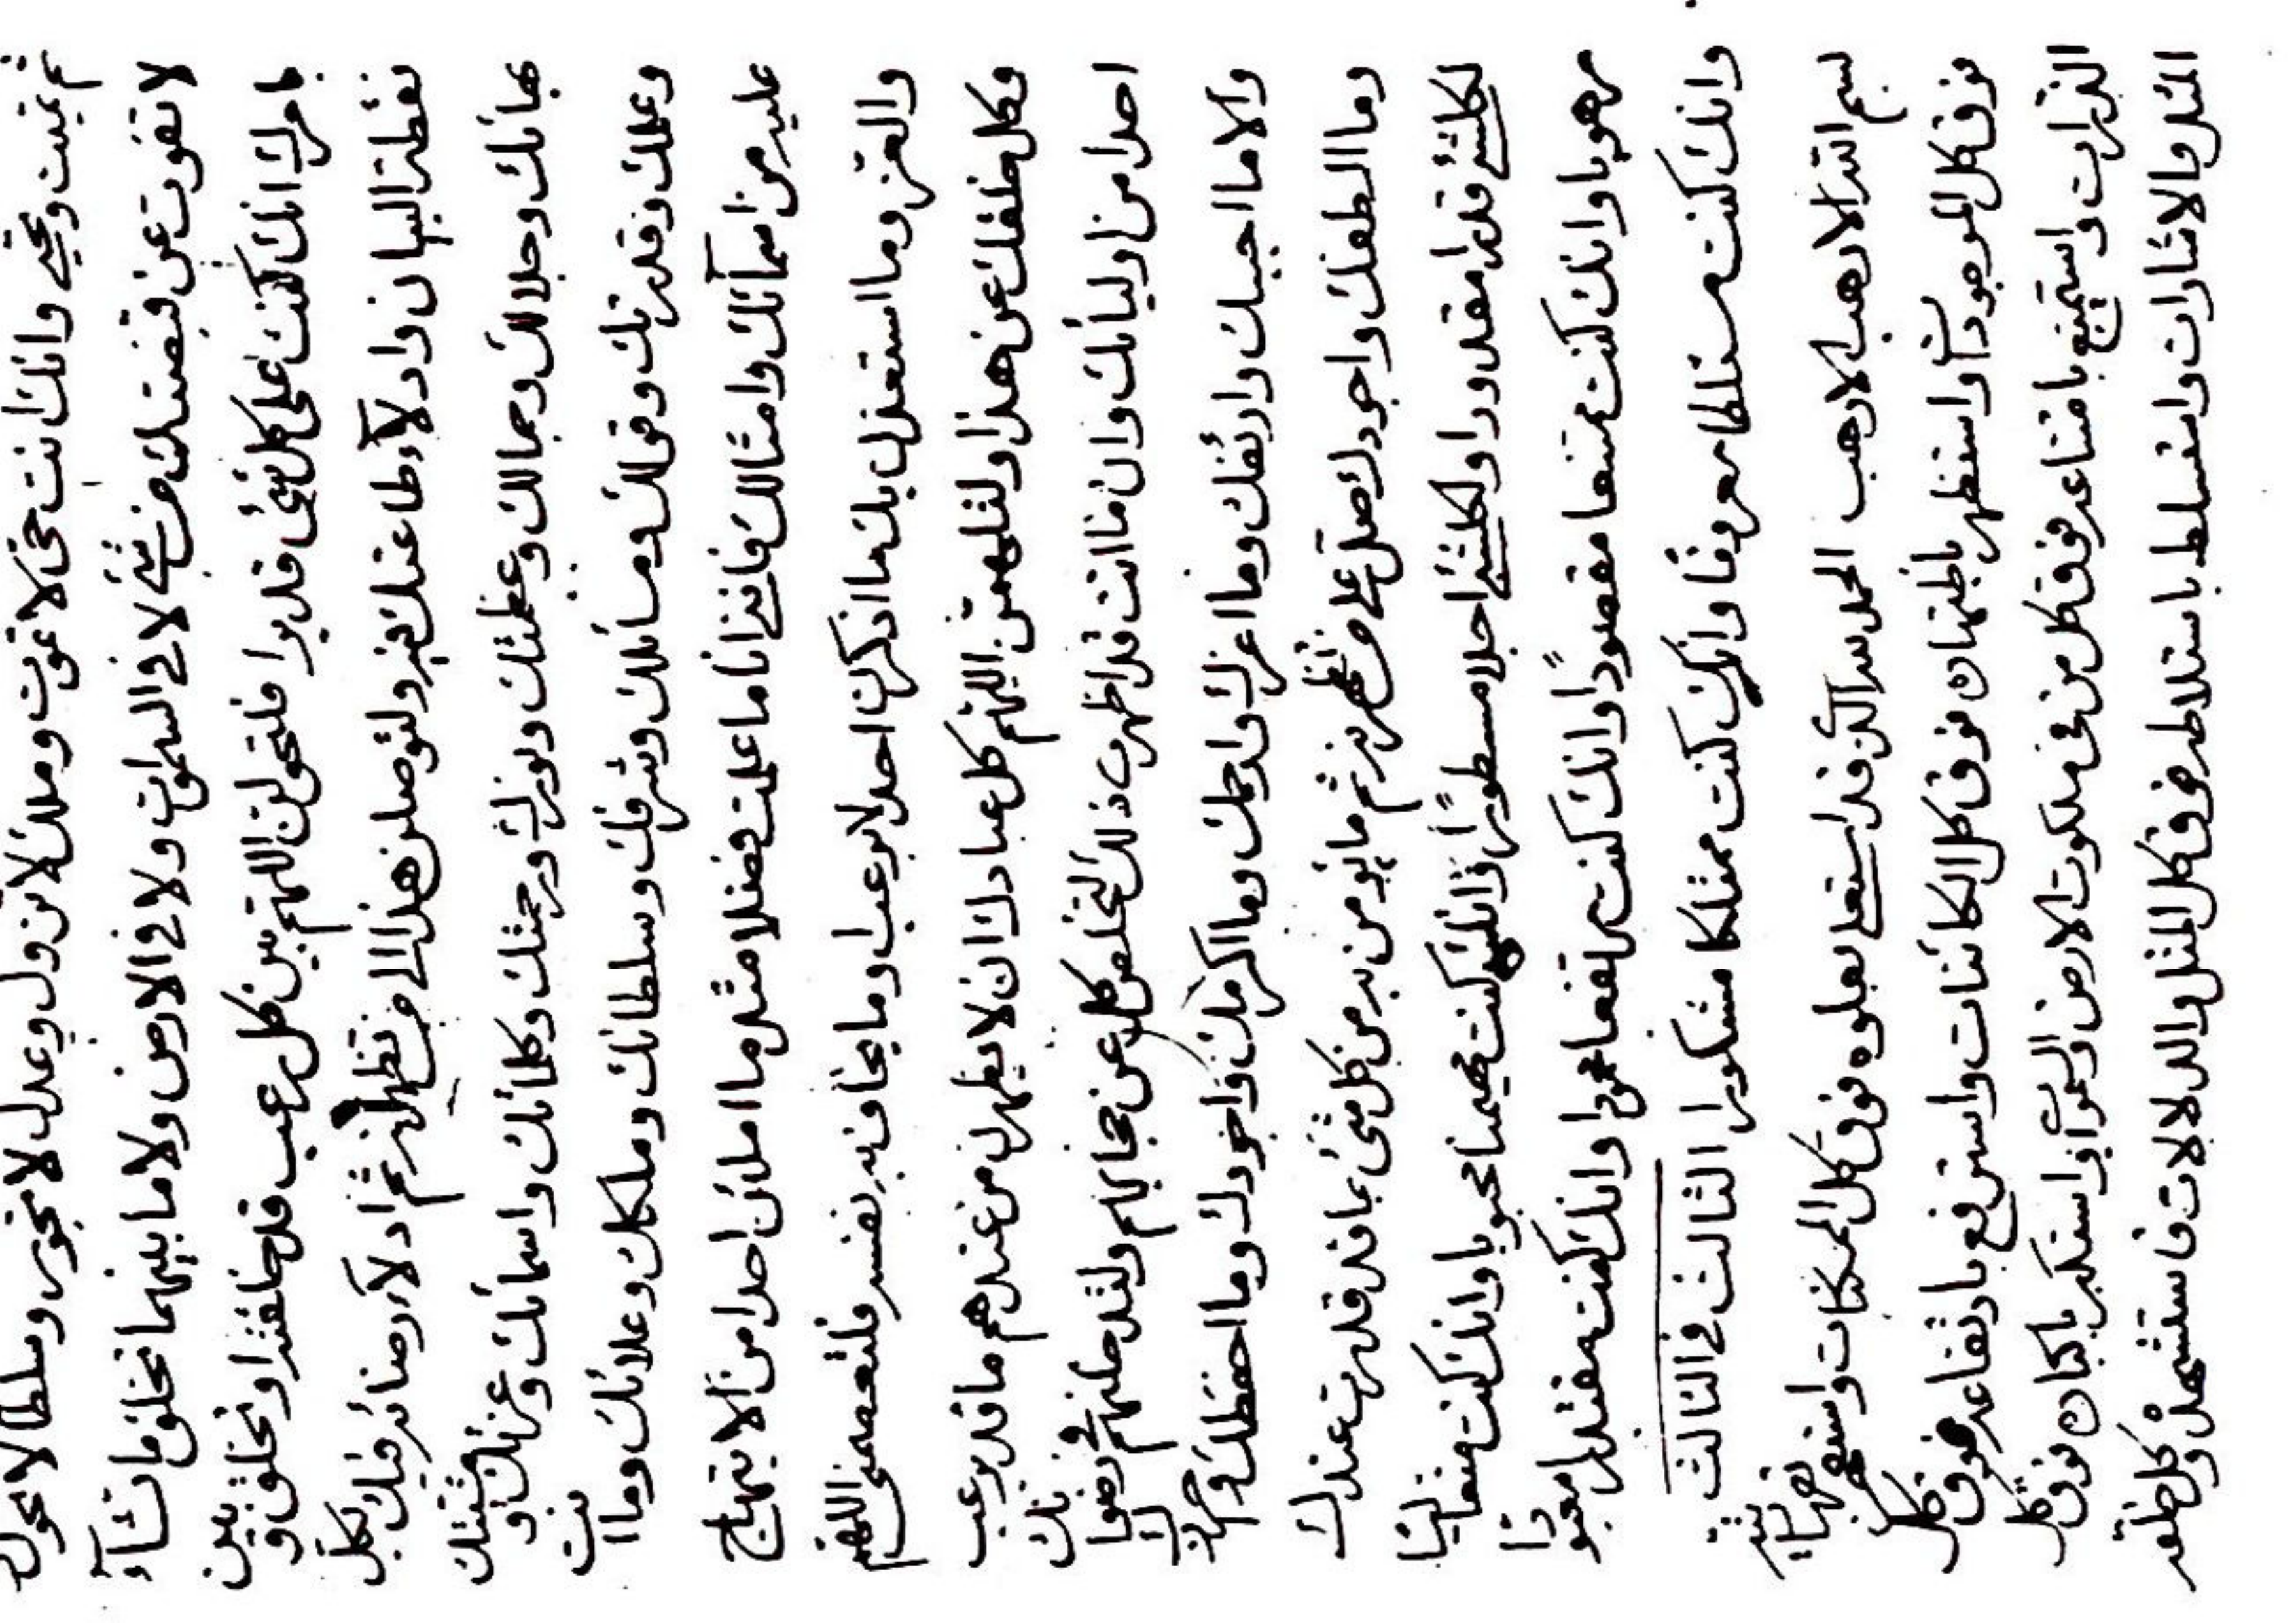 ثم تميت وتحيي وانك انت حي لا تموت وملك لا تزول وعدل لا تجور وسلطا لا تحول
لا تفوت عن قبضتك من شئ لا في السموات ولا في الارض ولا ما بينهما تخلق ما تشآء
بامرك انك كنت على كل شئ قديرا فلتحولن اللهم بين كل رعب قد خلقته او تخلق و بين
نقطة البيان وادلآء طاعتك فيه ولتوصلن هذا الى من تظهرنه ثم ادلآء رضائه فيك بكل
بهائك وجلالك وجمالك وعظمتك ونورك ورحمتك وكلماتك واسمائك وعزتك ومشيتك
وعلمك وقدرتك وقولك ومسائلك وشرفك وسلطانك وملكك وعلائك وما انت
عليه من اسمآئك وامثالك فانني انا ما علمت فضلا مثل ما املئن احدا من الابتهاج
والعز وما استعذب بك ما اذكرن احدا لا يرعب وما يخاف به نفسه فلتعصمني اللهم
وكل خلقك عن هذا ولتلهمن اللهم كل عبادك ان لا يظهرن من عندهم ما قد يرعب
احدا من اوليائك وان ما انت قد اظهرت ذلك لتخلص كل عن حجابهم ولتدخلنهم في رضوانك
والا ما احبك وارئفك وما اعزك وارحمك وما اكرمك واجودك وما احفظك واحرزك
وما الطفك واجودك صل على من تظهرنه ثم ما يؤمن به من كل شئ بما قد قدرت عندك
لكلشئ قدرا مقدورا ولكلشئ اجلا مسطورًا اذ انك كنت مهيمنا محبوبا وانك كنت متعاليا
مرهوبا وانك كنت ممتنعا مقصودًا وانك كنت مرتفعا محمودا وانك كنت مقتدرا معبودا
وانك كنت مستلطا معروفا وانك كنت ممتلكا مشكورا الثالث في الثالث
بسم الله الارهب الارهب الحمد لله الذي قد استعلى بعلوه فوق كل الممكنات واستقهر بقهاريته
فوق كل الموجودات واستظهر باظهاره فوق كل الكائنات واسترفع بارتفاعه فوق كل
الذرات واستمنع بامتناعه فوق كل من في ملكوت الارض والسموات واستكبر باكباره فوق كل
المثل والاشارات واستسلط باستلاطه فوق كل المثل والدلالات فاستشهده وكل خلقه